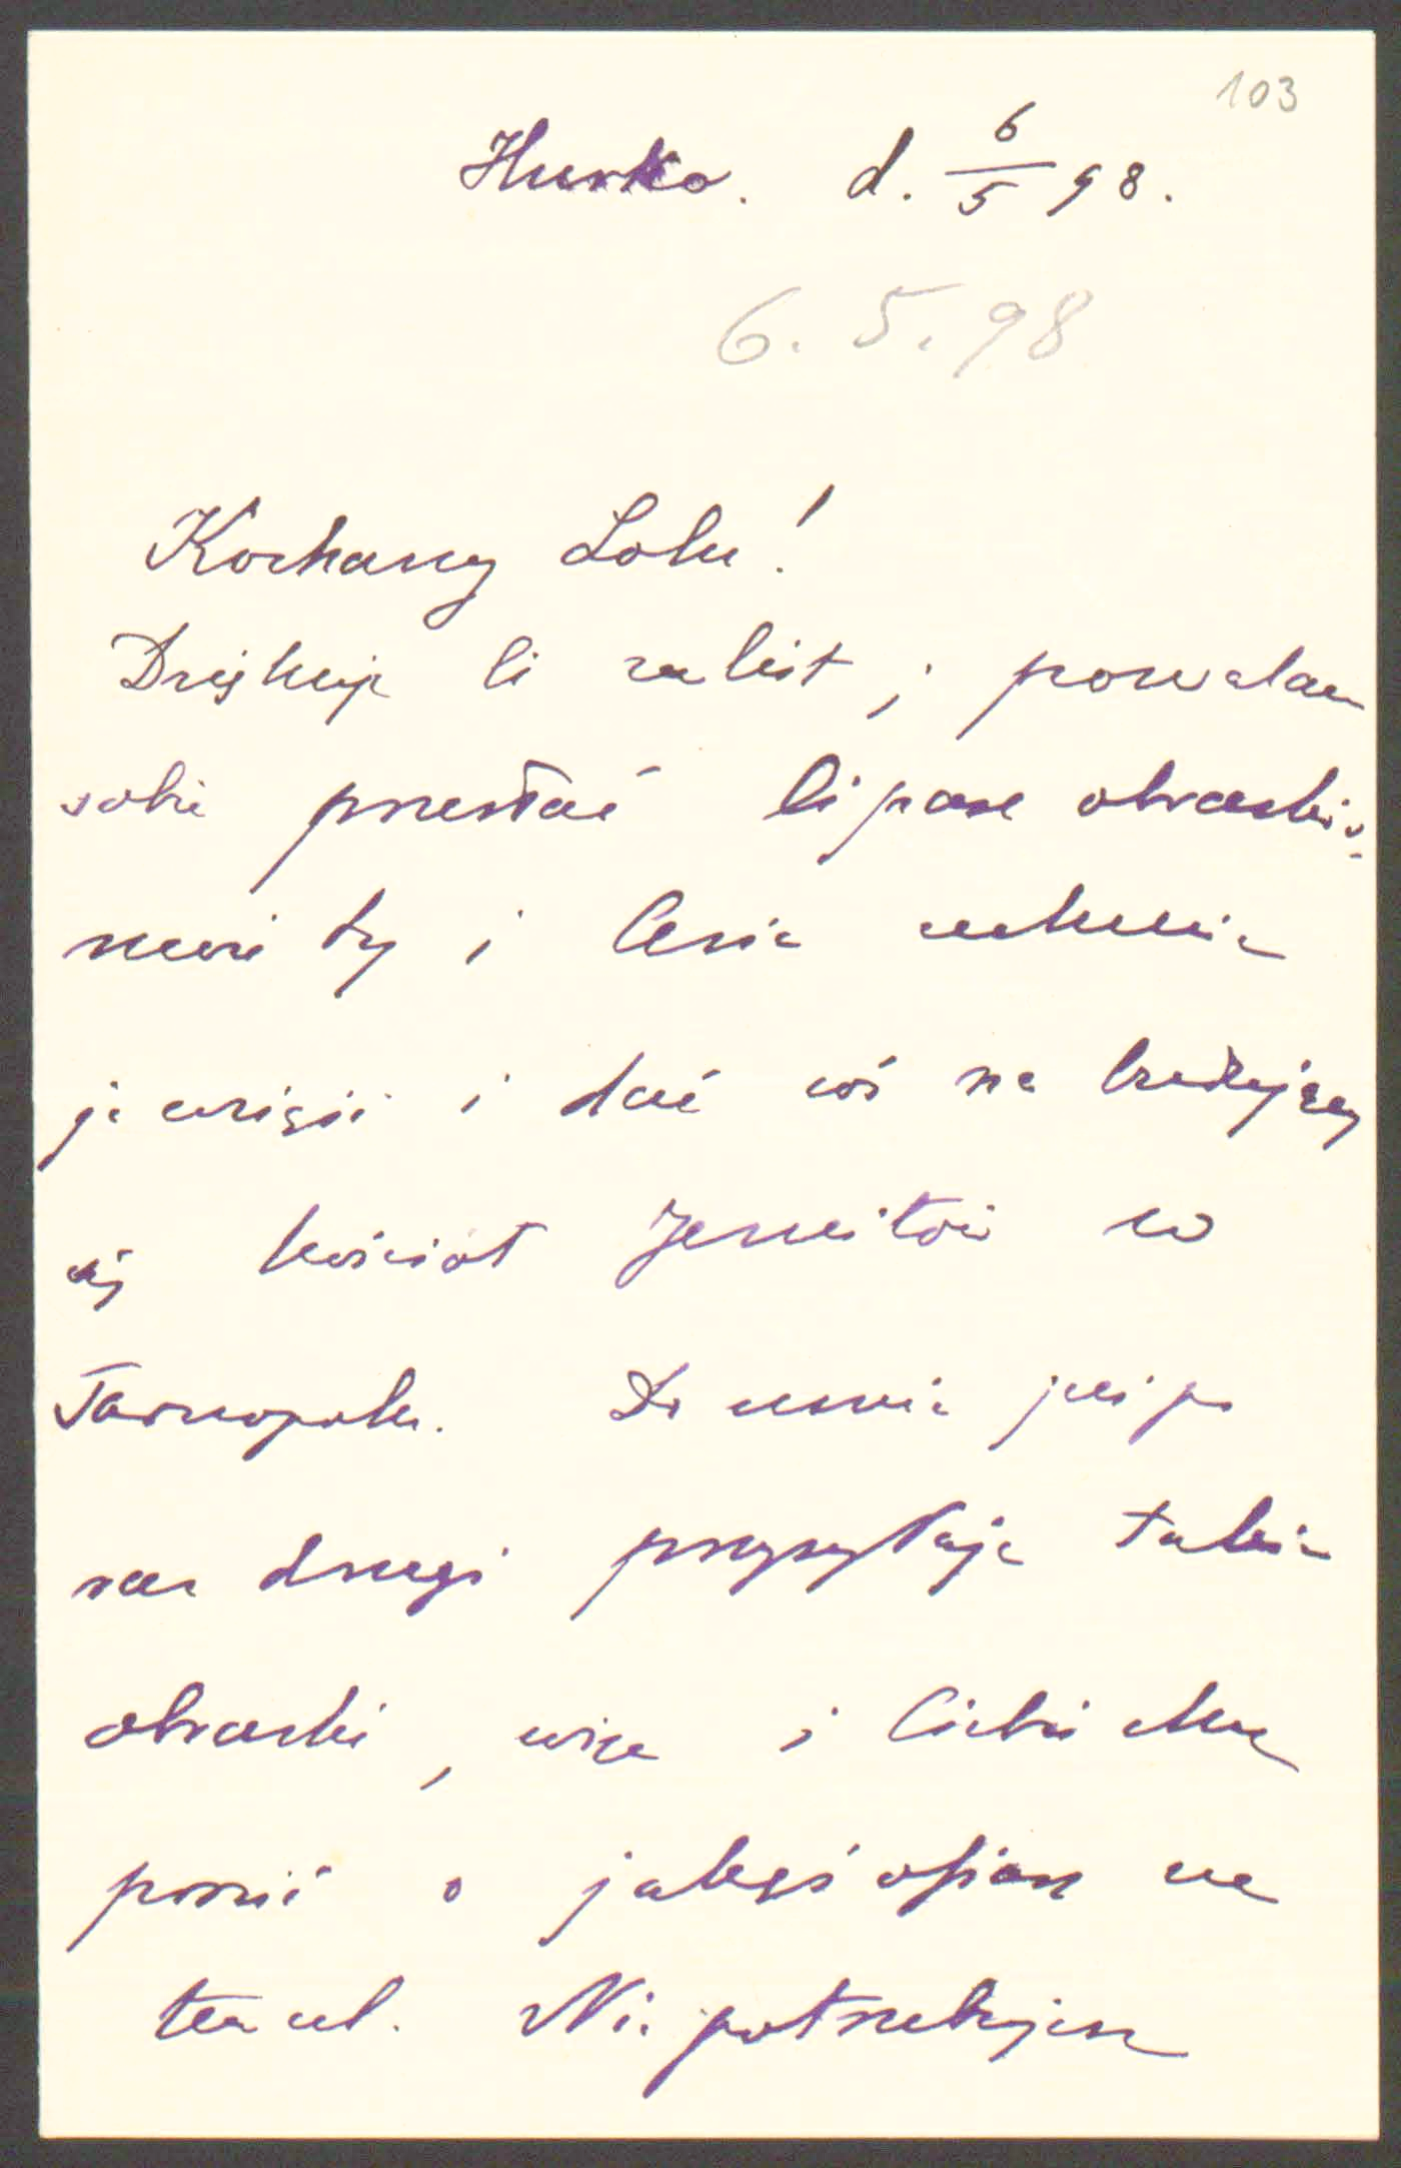 103
Hurko. d. 6/5 98.
6. 5. 98
Kochany Lolu!
Dziękuję Ci za list, i pozwalam
sobie przesłać Ci parę obrazków
może ty i Cesia zechcecie
je wziąść i dać coś na budujący
się kościół Jezuitów w
Tarnopolu. Do mnie już po
raz drugi przysyłają takie
obrazki, więc i Ciebie chcę
prosić o jakąś ofiarę na
ten cel. Nie potrzebujesz